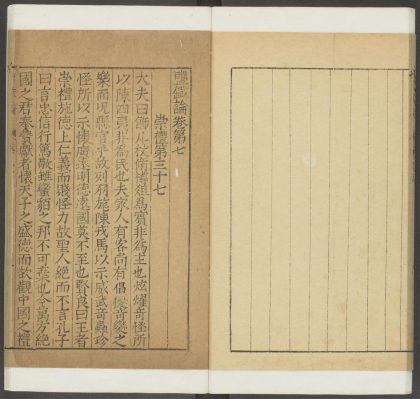 鹽鐵論卷第七
崇禮第三十七
大夫曰飾几杖脩樽俎為賓非為主也炫耀奇怪所
以陳四夷非為民也夫家人有客尚有倡優奇變之
樂而況縣官乎故列羽旄陳戎馬以示威武奇蟲珍
怪所以示懷廣遠明德遠國莫不至也賢良曰王者
崇禮施德上仁義而賤怪力故聖人絕而不言孔子
曰言忠信行篤敬雖蠻貊之邦不可棄也今萬方絕
國之君奉贄獻者懷天子之盛德而欲觀中國之禮